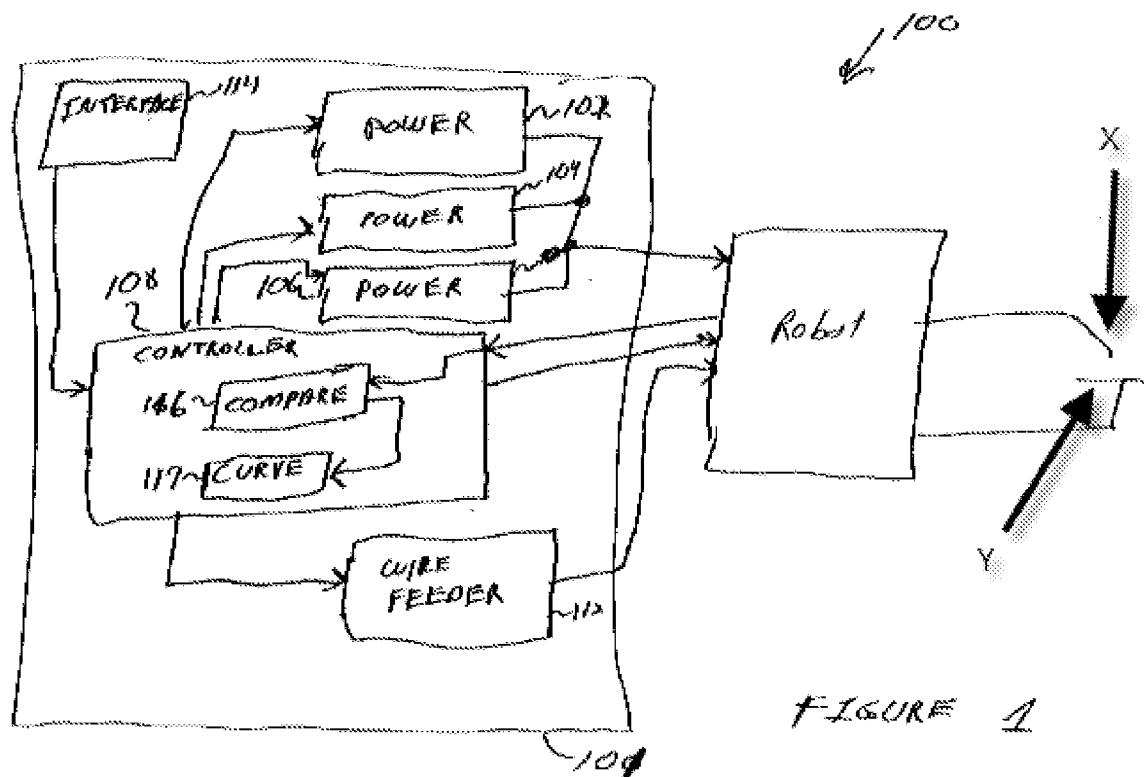 100
INTERFACE
114
POWER
102
X
POWER
104
106
POWER
108
CONTROLLER
Robot
COMPARE
117
CURVE
WIRE
FEEDER
112
Y
FIGURE 1